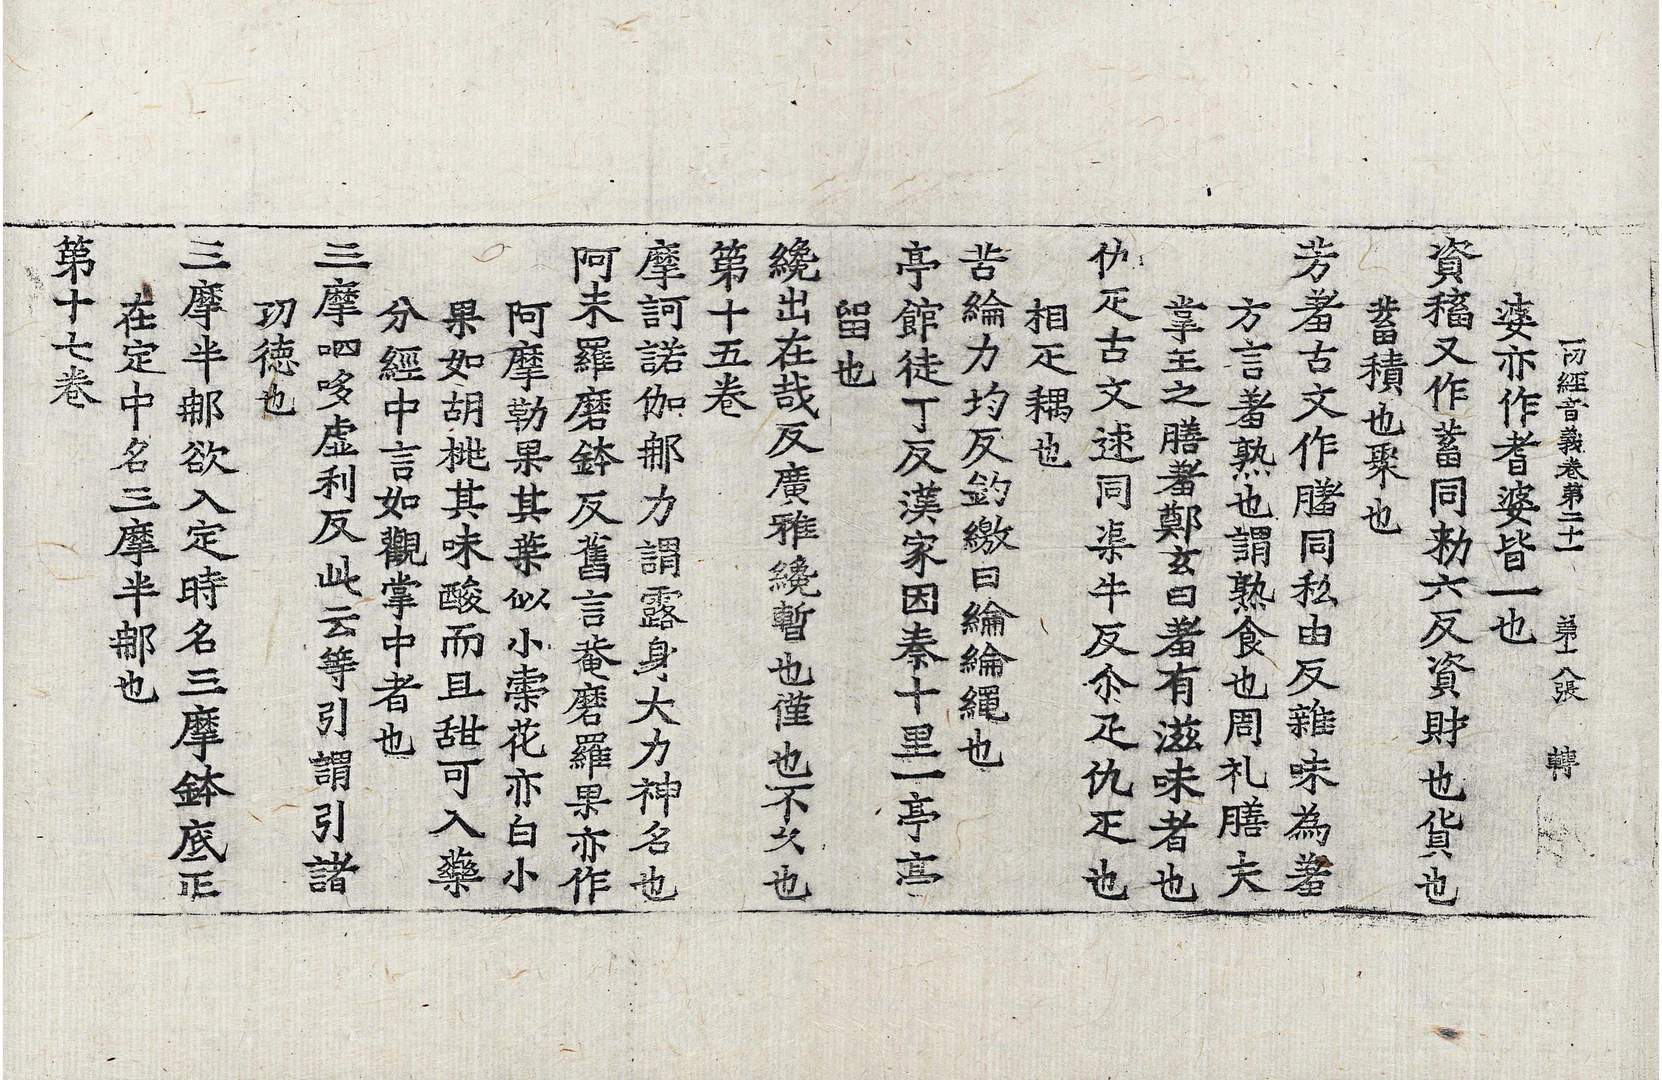 一切經音義卷第二十一 第十八張 轉
婆亦作耆婆皆一也
資稸又作蓄同勑六反資財也貨也
蓄積也聚也
芳羞古文作膳同私由反雜味為羞
方言羞熟也謂熟食也周礼膳夫
掌王之膳羞鄭玄曰羞有滋味者也
仇疋古文逑同渠牛反尒疋仇疋也
相疋耦也
苦綸力均反釣繳曰綸綸繩也
亭館徒丁反漢家因秦十里一亭亭
留也
纔出在哉反廣雅纔暫也僅也不久也
第十五卷
摩訶諾伽那力謂露身大力神名也
阿末羅磨鉢反舊言菴磨羅果亦作
阿摩勒果其葉似小棗花亦白小
果如胡桃其味酸而且甜可入藥
分經中言如觀掌中者也
三摩呬哆虛利反此云等引謂引諸
功徳也
三摩半那欲入定時名三摩鉢底正
在定中名三摩半那也
第十七卷